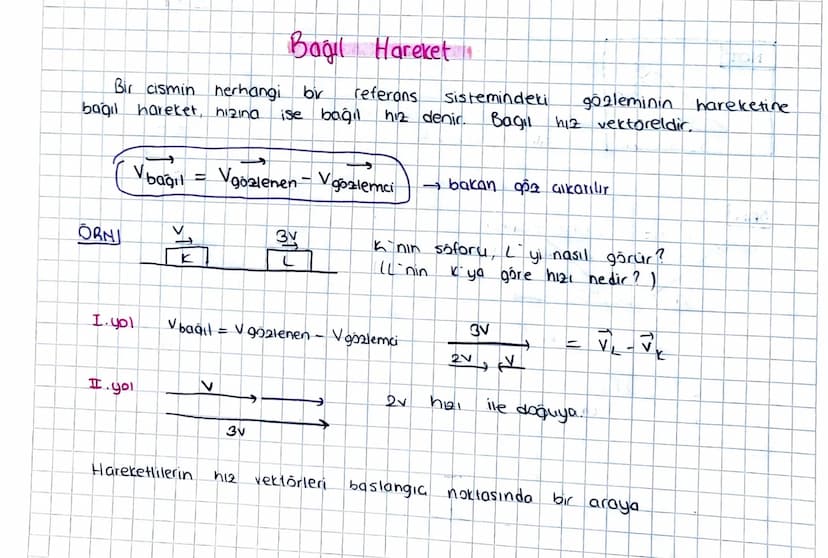 Bağıl Hareket
Bir cismin herhangi bir referans sistemindeki gözleminin hareketine
bağıl hareket, hızına ise bağıl hız denir. Bağıl hız vektoreldir.
V bağıl = V gözlenen - V gözlemci → bakan göz çıkarılır
ÖRN/
V
3V
K
L
K'nın şoförü, L'yi nasıl görür?
(L'nin K'ya göre hızı nedir?)
I. yol V bağıl = V gözlenen - V gözlemci
3V
2V
V
= V⃗L - V⃗K
II. yol
V
3V
2v hızı ile doğuya.
Hareketlilerin hız vektörleri başlangıç noktasında bir araya